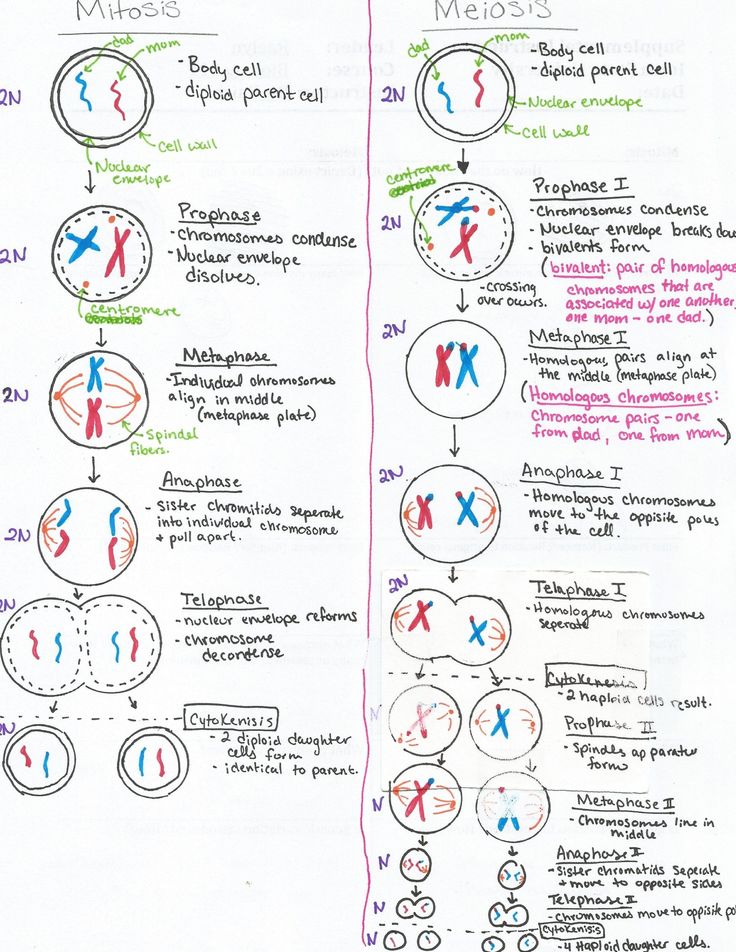 Mitosis
dad
mom
2N
- Body cell
- diploid parent cell
Cell wall
Nuclear
envelope
Prophase
- Chromosomes condense
- Nuclear envelope
disolves.
2N
centromere
Metaphase
- Individual chromosomes
align in middle
(metaphase plate)
2N
Spindel
fibers.
Anaphase
- Sister chromitids seperate
into individual chromosome
+ pull apart.
2N
Telophase
- nuclear envelope reforms
- chromosome
decondense
2N
Cytokenisis
- 2 diploid daughter
cells form
- identical to parent.
2N
Meiosis
dad
mom
2N
- Body cell
- diploid parent cell
Nuclear envelope
Cell wall
centromere
Prophase I
- Chromosomes condense
- Nuclear envelope breaks dow
- bivalents form
2N
(bivalent: pair of homologous
chromosomes that are
associated w/ one another,
one mom - one dad.)
- crossing
over occurs.
2N
Metaphase I
- Homologous pairs align at
the middle (metaphase plate)
(Homologous chromosomes:
chromosome pairs - one
from dad, one from mom)
2N
Anaphase I
- Homologous chromosomes
move to the oppisite poles
of the cell.
2N
Telaphase I
- Homologous chromosomes
seperate
Cytokenesis
- 2 haploid cells result.
N
Prophase II
- Spindles apparatus
forms
N
Metaphase II
- Chromosomes line in
middle
N
Anaphase II
- Sister chromatids seperate
+ move to opposite sides
N
Telephase II
- chromosomes move to oppisite po
Cytokenisis
N
- 4 Haploid daughter cells.